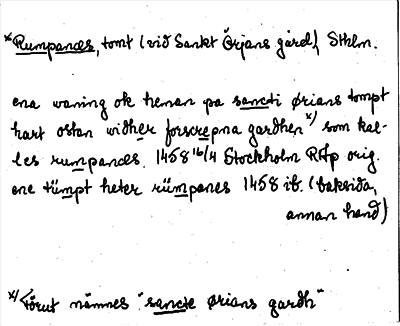 x Rumpanæs, tomt (vid Sankt Örjans gård), Sthlm.
ena waning ok heman pa sancti ørians tompt
hart ostan widher forscrepna gardhen x) som kal-
les rumpanæs. 1458 16/4 Stockholm RAp orig.
ene tümpt heter rümpanes 1458 ib. (baksida,
annan hand)
x) Förut nämnes "sancte ørians gardh"